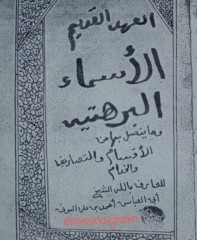 العهد القديم
الأسماء
البرهتيه
وما يتصل بها من
الأقسام والتصاريف
والخدام
للعارف بالله الشيخ
أبي العباس أحمد بن علي البوني